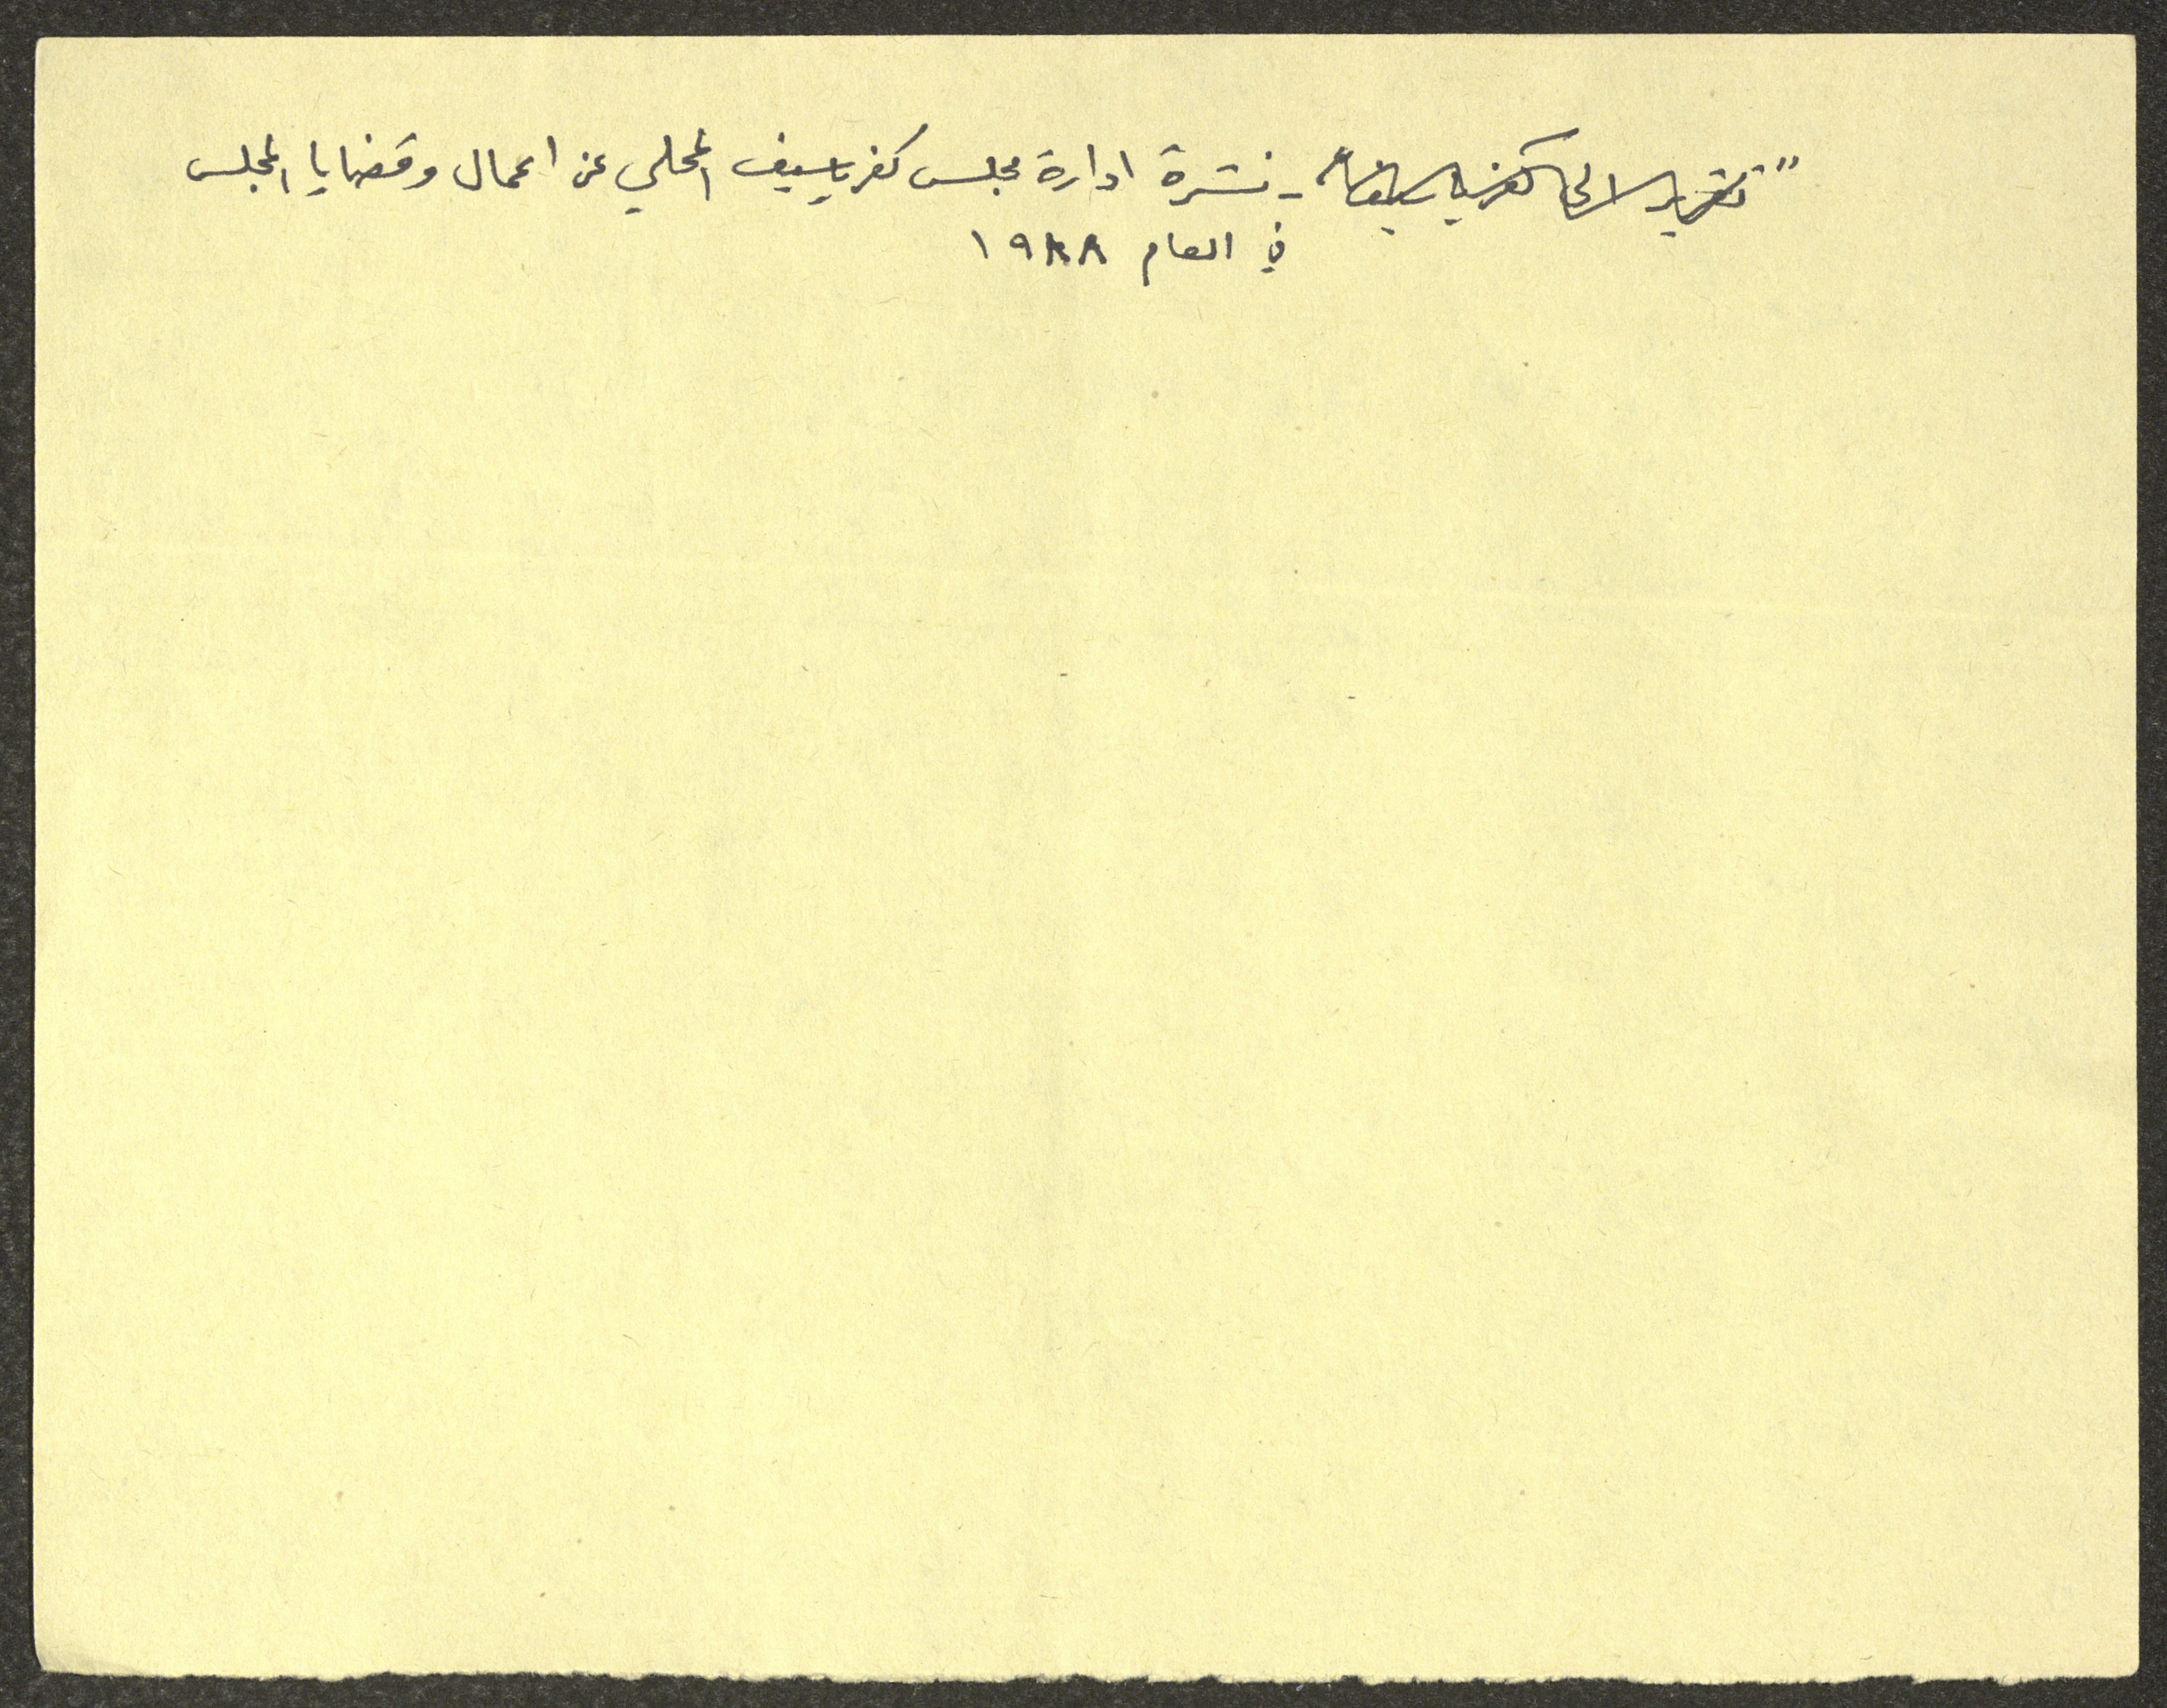 "تقرير الى كفرياسيف" - نشرة ادارة مجلس كفرياسيف المحلي عن اعمال وقضايا المجلس
في العام ١٩٨٨